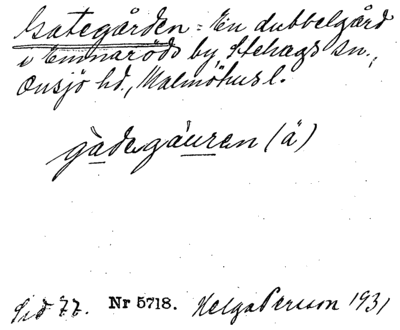 Gategården = En dubbelgård
i Emnaröds by, Stehags sn.,
Onsjö hd., Malmöhus l.
gàdegáuren (ä)
Sid 77. Nr 5718. Helga Persson 1931